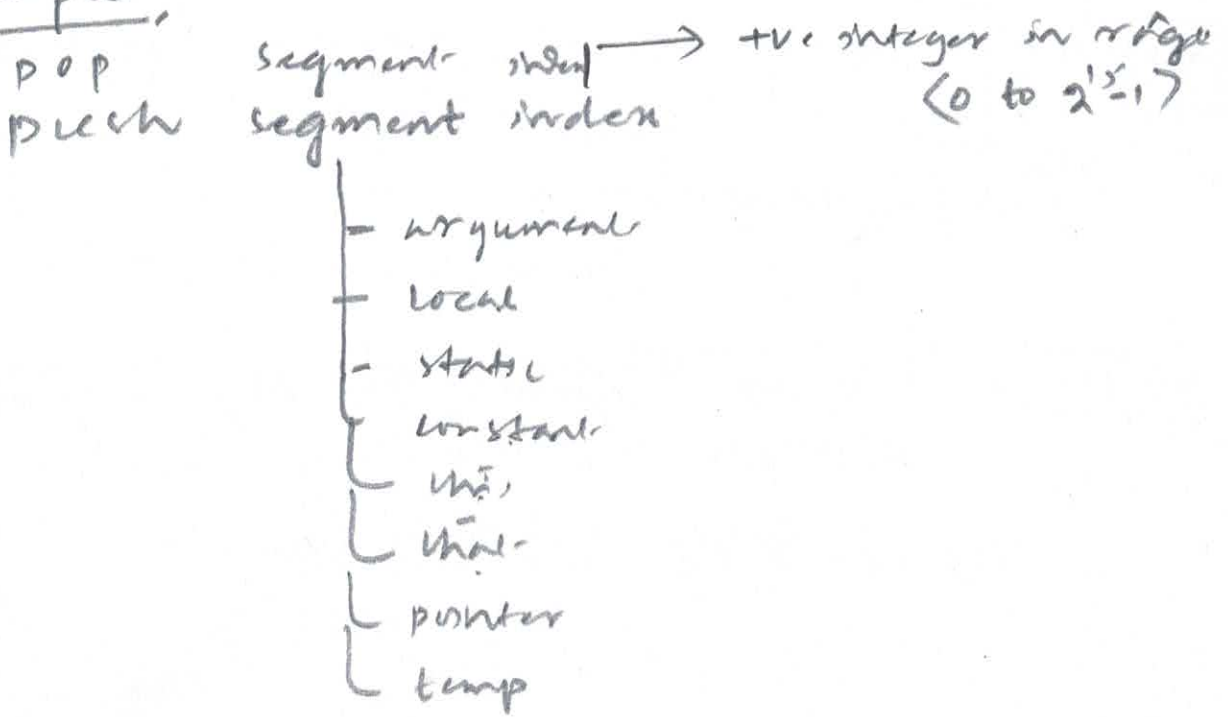 pop segment index → +ve integer in range
(0 to 2¹⁵-1)
push segment index
- argument
- local
- static
constant
this
that
pointer
temp